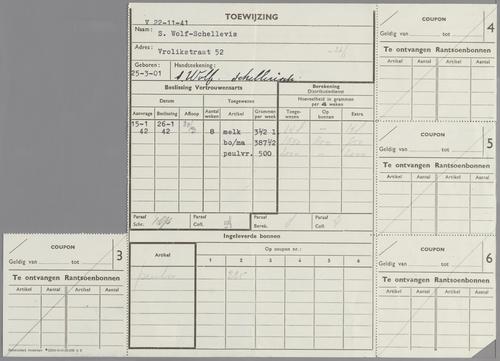 TOEWIJZING
V 22-11-41
Naam: S. Wolf-Schellevis
Adres: Vrolikstraat 52
Geboren: 25-3-01
Handtekening: S. Wolf. Schellevis
Beslissing Vertrouwensarts
Berekening
Distributiedienst
Datum
Toegewezen
Hoeveelheid in grammen
per 4 weken
Aanvrage
Beslissing
Afloop
Aantal weken
Artikel
Grammen per week
Toegewezen
Op bonnen
Extra
15-1 26-1 8 melk 3½ l
42 42 bo/ma 387½
peulvr. 500
Paraaf
Schr.
Paraaf
Coll.
Paraaf
Berek.
Paraaf
Coll.
Ingeleverde bonnen
Artikel
Op coupon nr.:
1 2 3 4 5 6
COUPON 4
Geldig van tot
Te ontvangen Rantsoenbonnen
Artikel Aantal Artikel Aantal
COUPON 5
Geldig van tot
Te ontvangen Rantsoenbonnen
Artikel Aantal Artikel Aantal
COUPON 6
Geldig van tot
Te ontvangen Rantsoenbonnen
Artikel Aantal Artikel Aantal
COUPON 3
Geldig van tot
Te ontvangen Rantsoenbonnen
Artikel Aantal Artikel Aantal